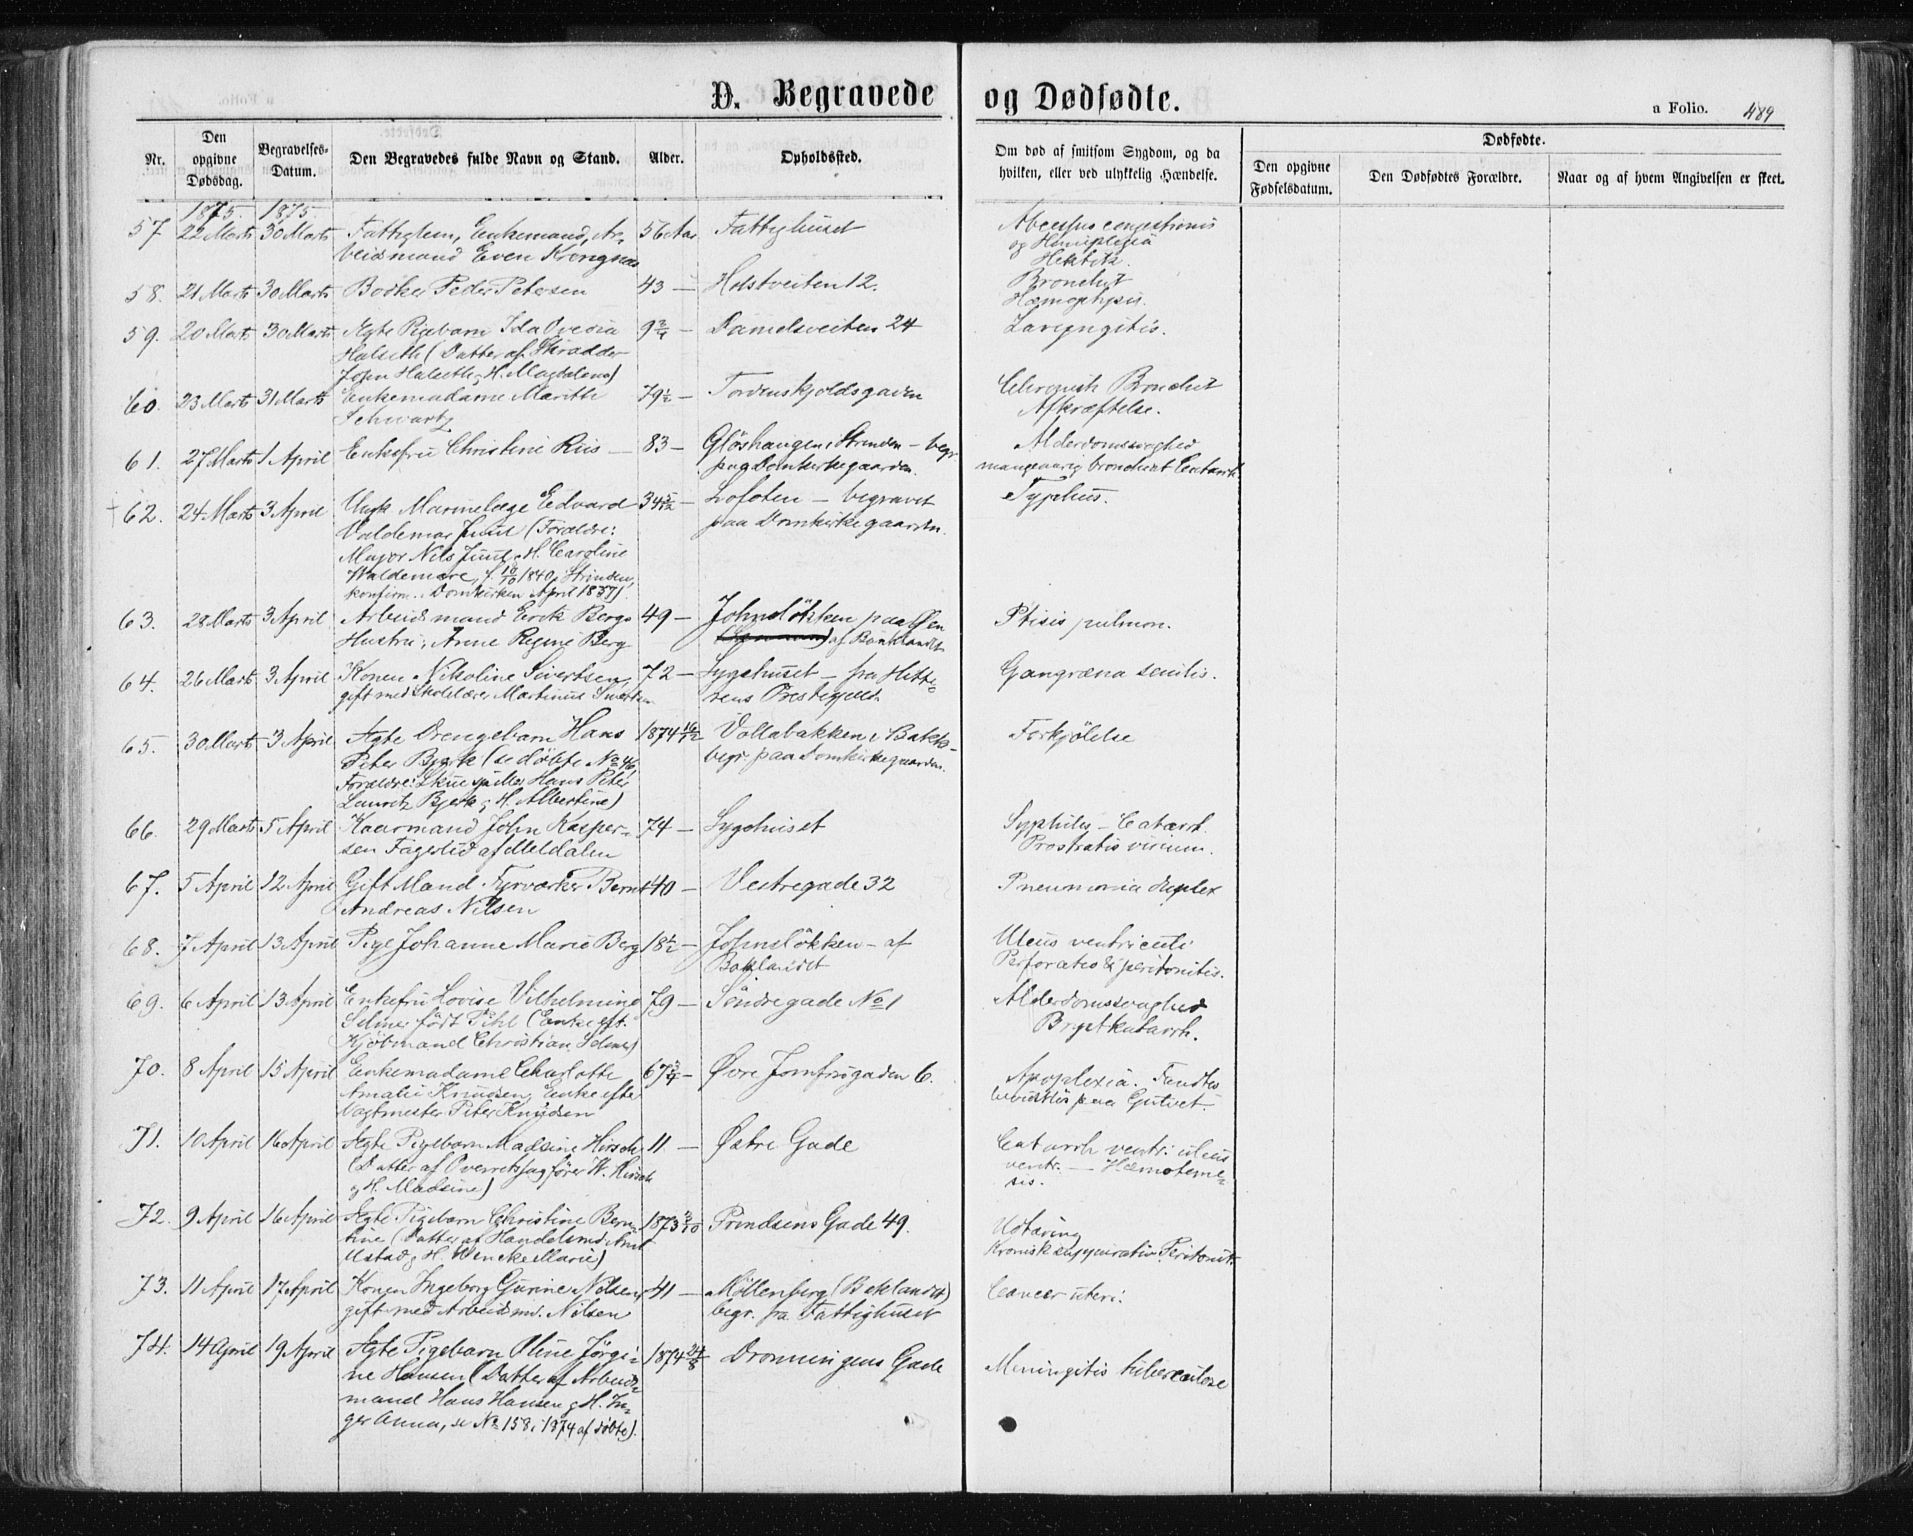 D. Begravede og Dødfødte.
a Folio. 489
Nr.
Den opgivne Dødsdag.
Begravelses-Datum.
Den Begravedes fulde Navn og Stand.
Alder.
Opholdssted.
Om død af smitsom Sygdom, og da hvilken, eller ved ulykkelig Hændelse.
Dødfødte.
Den opgivne Fødselsdatum.
Den Dødfødtes Forældre.
Naar og af hvem Angivelsen er skeet.
1875. 1875.
57 22 Marts 30 Marts Fattiglem, Enkemand, Ar- 56 Aar Fattighuset Abcessus congestionis
beidsmand Even Kongnæs og Hemiplegia
Hektik.
58. 21 Marts 30 Marts Bødker Peder Petersen 43 — Holstveiten 12. Bronchit
Hæmoptysis.
59. 20 Marts 30 Marts Ægte Pigebarn Ida Ovedia 9 3/4 — Danielsveiten 24 Laryngitis.
Halseth (Datter af Skrædder
John Halseth og H. Magdalena)
60. 23 Marts 31 Marts Enkemadame Marith 79 1/2 — Tordenskjoldsgaden Chronisk Bronchit
Schwartz Afkræftelse.
61. 27 Marts 1 April Enkefru Christine Riis — 83 — Gløshaugen i Strinden — begr. Alderdomssvaghed
paa Domkirkegaarden. mangeaarig bronchial Catarrh
62. 24 Marts 3 April Ungk. Marinelæge Edvard 34 5/12 — Lofoten — begravet Typhus.
Valdemar Juul (Forældre: paa Domkirkegaarden.
Major Nils Juul og H. Caroline
Waldemare, f. 18/10 1840 i Strinden,
konfirm. i Domkirken April 1857).
63. 28 Marts 3 April Arbeidsmand Erik Bergs 49 — Johnsløkken paa Øen Ptisis pulmon.
Hustru, Anne Regine Berg af Baklandet
64. 26 Marts 3 April Konen Nikoline Sivertsen, 72 — Sygehuset — fra Hitte- Gangræna senilis.
gift med Skolelærer Martinus Sivertsen rens Præstegjeld.
65. 30 Marts 3 April Ægte Drengebarn Hans 1874 16/12 Vollabakken i Bakke- Forkjølelse
Peter Bjerk (se døbte No 46 begr. paa Domkirkegaarden.
Forældre: Skuespiller Hans Peter
Lauritz Bjerk og H. Albertine)
66. 29 Marts 5 April Kaarmand John Kasper- 74 — Sygehuset Syphilis — Catarrh.
sen Fagerlid af Meldalen Prostratio virium.
67. 5 April 12 April Gift Mand Fyrværker Bernt 40 — Vestregade 32 Pneumonia duplex
Andreas Nilsen
68. 7 April 13 April Pige Johanne Marie Berg 18 1/2 — Johnsløkken — af Ulcus ventriculi
Baklandet Perforatio & peritonitis.
69. 6 April 13 April Enkefru Lovise Vilhelmine 79 — Søndregade No 1 Alderdomssvaghed
Selmer født Pihl (Enke eft. Brystkatarrh.
Kjøbmand Christian Selmer)
70. 8 April 15 April Enkemadame Charlotte 67 3/4 — Øvre Jomfrugaden 6. Apoplexia. Fandtes
Amalie Knudsen, Enke efter bevidstløs paa Gulvet.
Vagtmester Peter Knudsen
71. 10 April 16 April Ægte Pigebarn Madsine Hirsch 11 — Østre Gade Catarrh ventr: ulcus
(Datter af Overretssagfører W. Hirsch ventr. — Hæmateme-
og H. Madsine) sis.
72. 9 April 16 April Ægte Pigebarn Christine Bern- 1873 Prindsens Gade 49. Udtæring
tine (Datter af Handelsmd. Kronisk suppurativ Peritonit.
Ustad og H. Wencke Marie)
73. 11 April 17 April Konen Ingeborg Gurine Nilsen, 41 — Møllenberg (Baklandet) Cancer uteri.
gift med Arbeidsmd. Nilsen begr. fra Fattighuset
74. 14 April 19 April Ægte Pigebarn Oline Jørgi- 1874 24/8 Dronningens Gade Meningitis tuberculose
ne Hansen (Datter af Arbeids-
mand Hans Hansen og H. In-
ger Anna, se No 158 i 1874 af døbte).